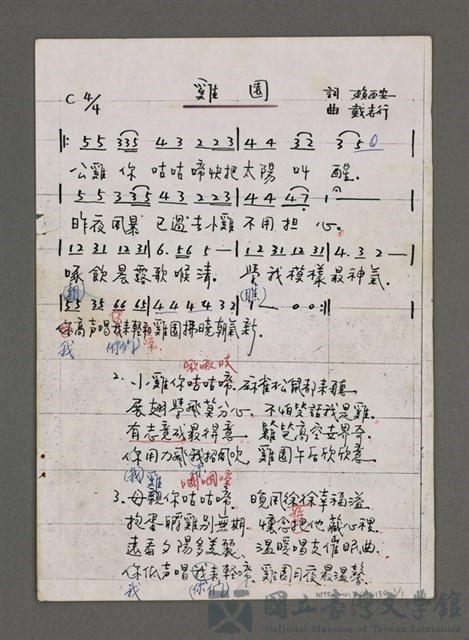 雞園
C 4/4
詞 賴西安
曲 戴老行
5 5 3 3 5 4 3 2 2 3 4 4 3 2 3 5 0
公雞你咕咕啼快把太陽叫醒。
5 5 3 3 5 4 3 2 2 3 4 4 4 7 1 —
昨夜風暴已過去小雞不用担心。
1 2 3 1 1 2 3 1 6. 5 6 5 — 1 2 3 1 1 2 3 1 4. 3 2 —
啄飲晨露歌喉清。學我模樣最神氣。
(雞)
5 5 3 5 6 6 6 5 4 4 4 4 3 2 1 — 0 0
你高声唱我來輕啼雞園拂曉朝氣新。
我 你們 啼
啾啾吱
2. 小雞你咕咕啼。麻雀松鼠都來聽
展翅學飛莫分心。不怕笑話我是雞。
有志竟成最得意。籬笆高空去界奇。
你用力飛我招風吹 雞園午后欣欣意
(我) 雞 咽咽啼
3. 母親你咕咕啼。晚風徐徐幸福溢
抱蛋孵雞別無期。懷念把他藏心裡
遠看夕陽多美麗。溫暖唱支催眠曲。
你低声唱我來輕啼。雞園月夜最溫馨
我 (你們)
國立臺灣文學館
National Museum of Taiwan Literature